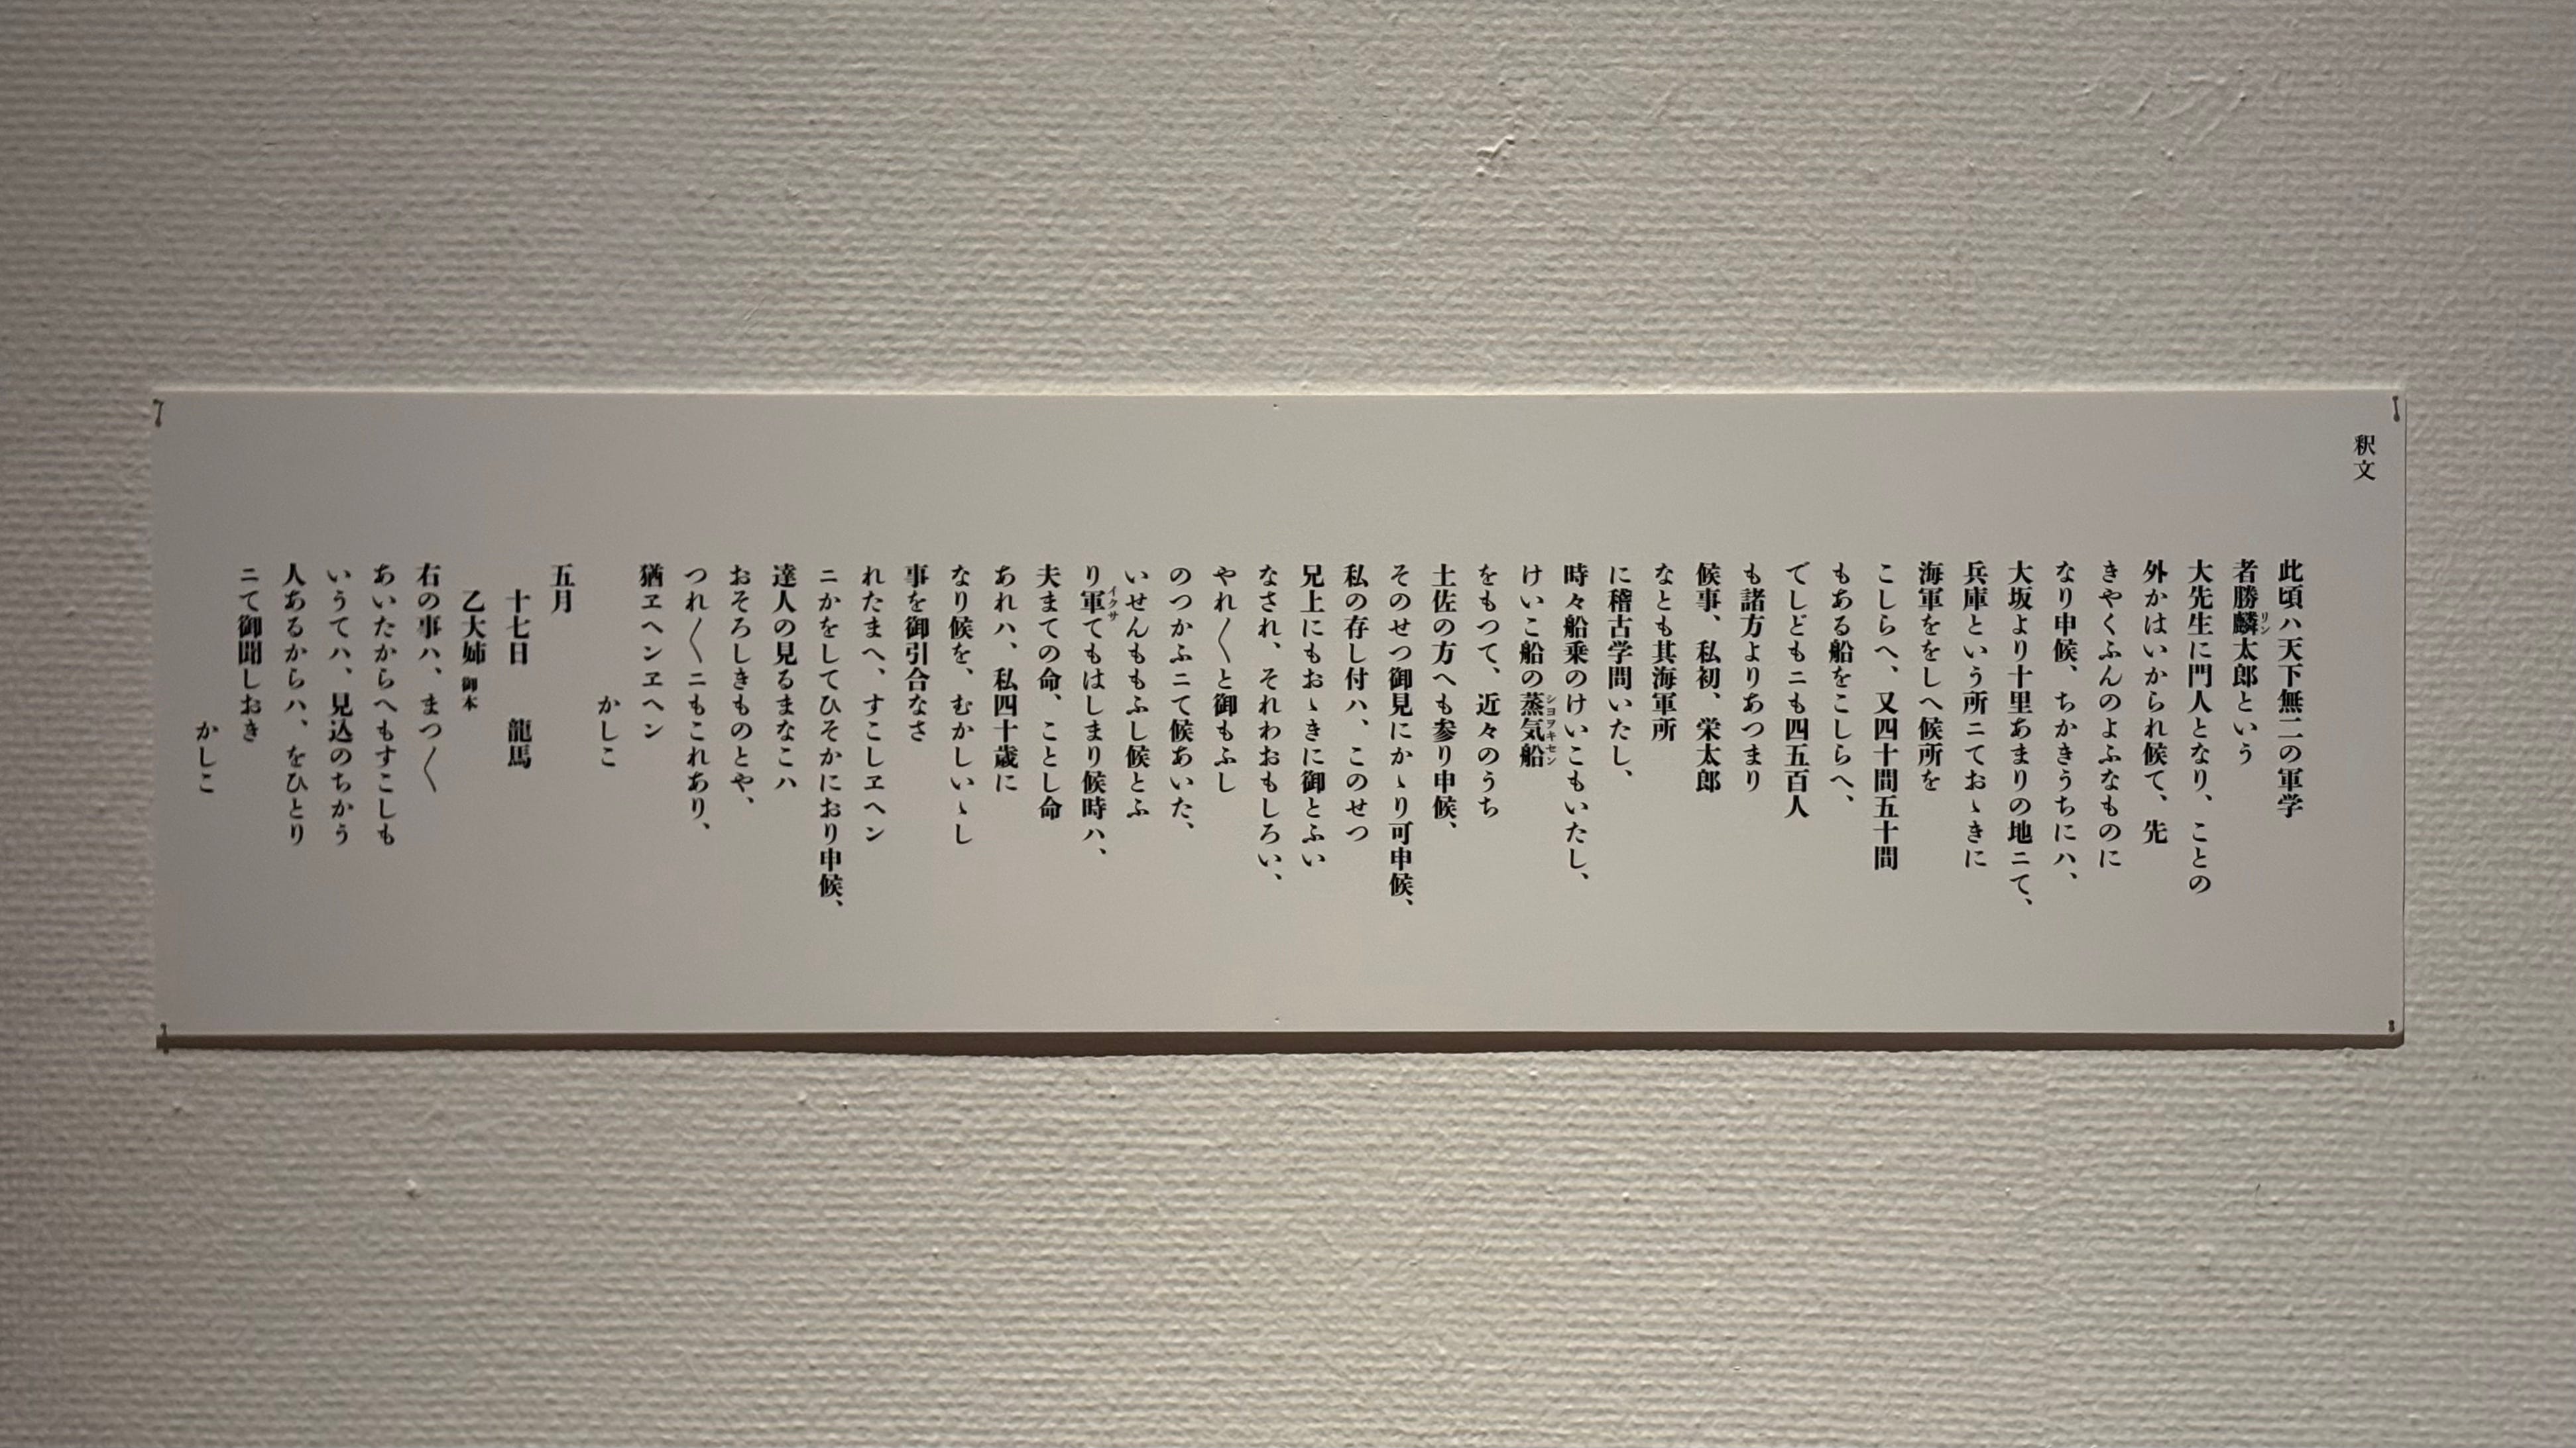 釈文
此頃ハ天下無二の軍学
者勝麟太郎という
大先生に門人となり、ことの
外かはいがられ候て、先
きやくふんのよふなものに
なり申候、ちかきうちにハ、
大坂より十里あまりの地ニて、
兵庫という所ニておゝきに
海軍ををしへ候所を
こしらへ、又四十間五十間
もある船をこしらへ、
でしどもニも四五百人
も諸方よりあつまり
候事、私初、栄太郎
なとも其海軍所
に稽古学問いたし、
時々船乗のけいこもいたし、
けいこ船の蒸気船
をもつて、近々のうち
土佐の方へも参り申候、
そのせつ御見にかゝり可申候、
私の存し付ハ、このせつ
兄上にもおゝきに御とふい
なされ、それわおもしろい、
やれ〳〵と御もふし
のつかふニて候あいた、
いせんももふし候とふ
り軍てもはしまり候時ハ、
夫まての命、ことし命
あれハ、私四十歳に
なり候を、むかしいゝし
事を御引合なさ
れたまへ、すこしヱヘン
ニかをしてひそかにおり申候、
達人の見るまなこハ
おそろしきものとや、
つれ〳〵ニもこれあり、
猶ヱヘンヱヘン
かしこ
五月
十七日　龍馬
乙大姉 御本
右の事ハ、まつ〳〵
あいたからへもすこしも
いうてハ、見込のちかう
人あるからハ、をひとり
ニて御聞しおき
かしこ